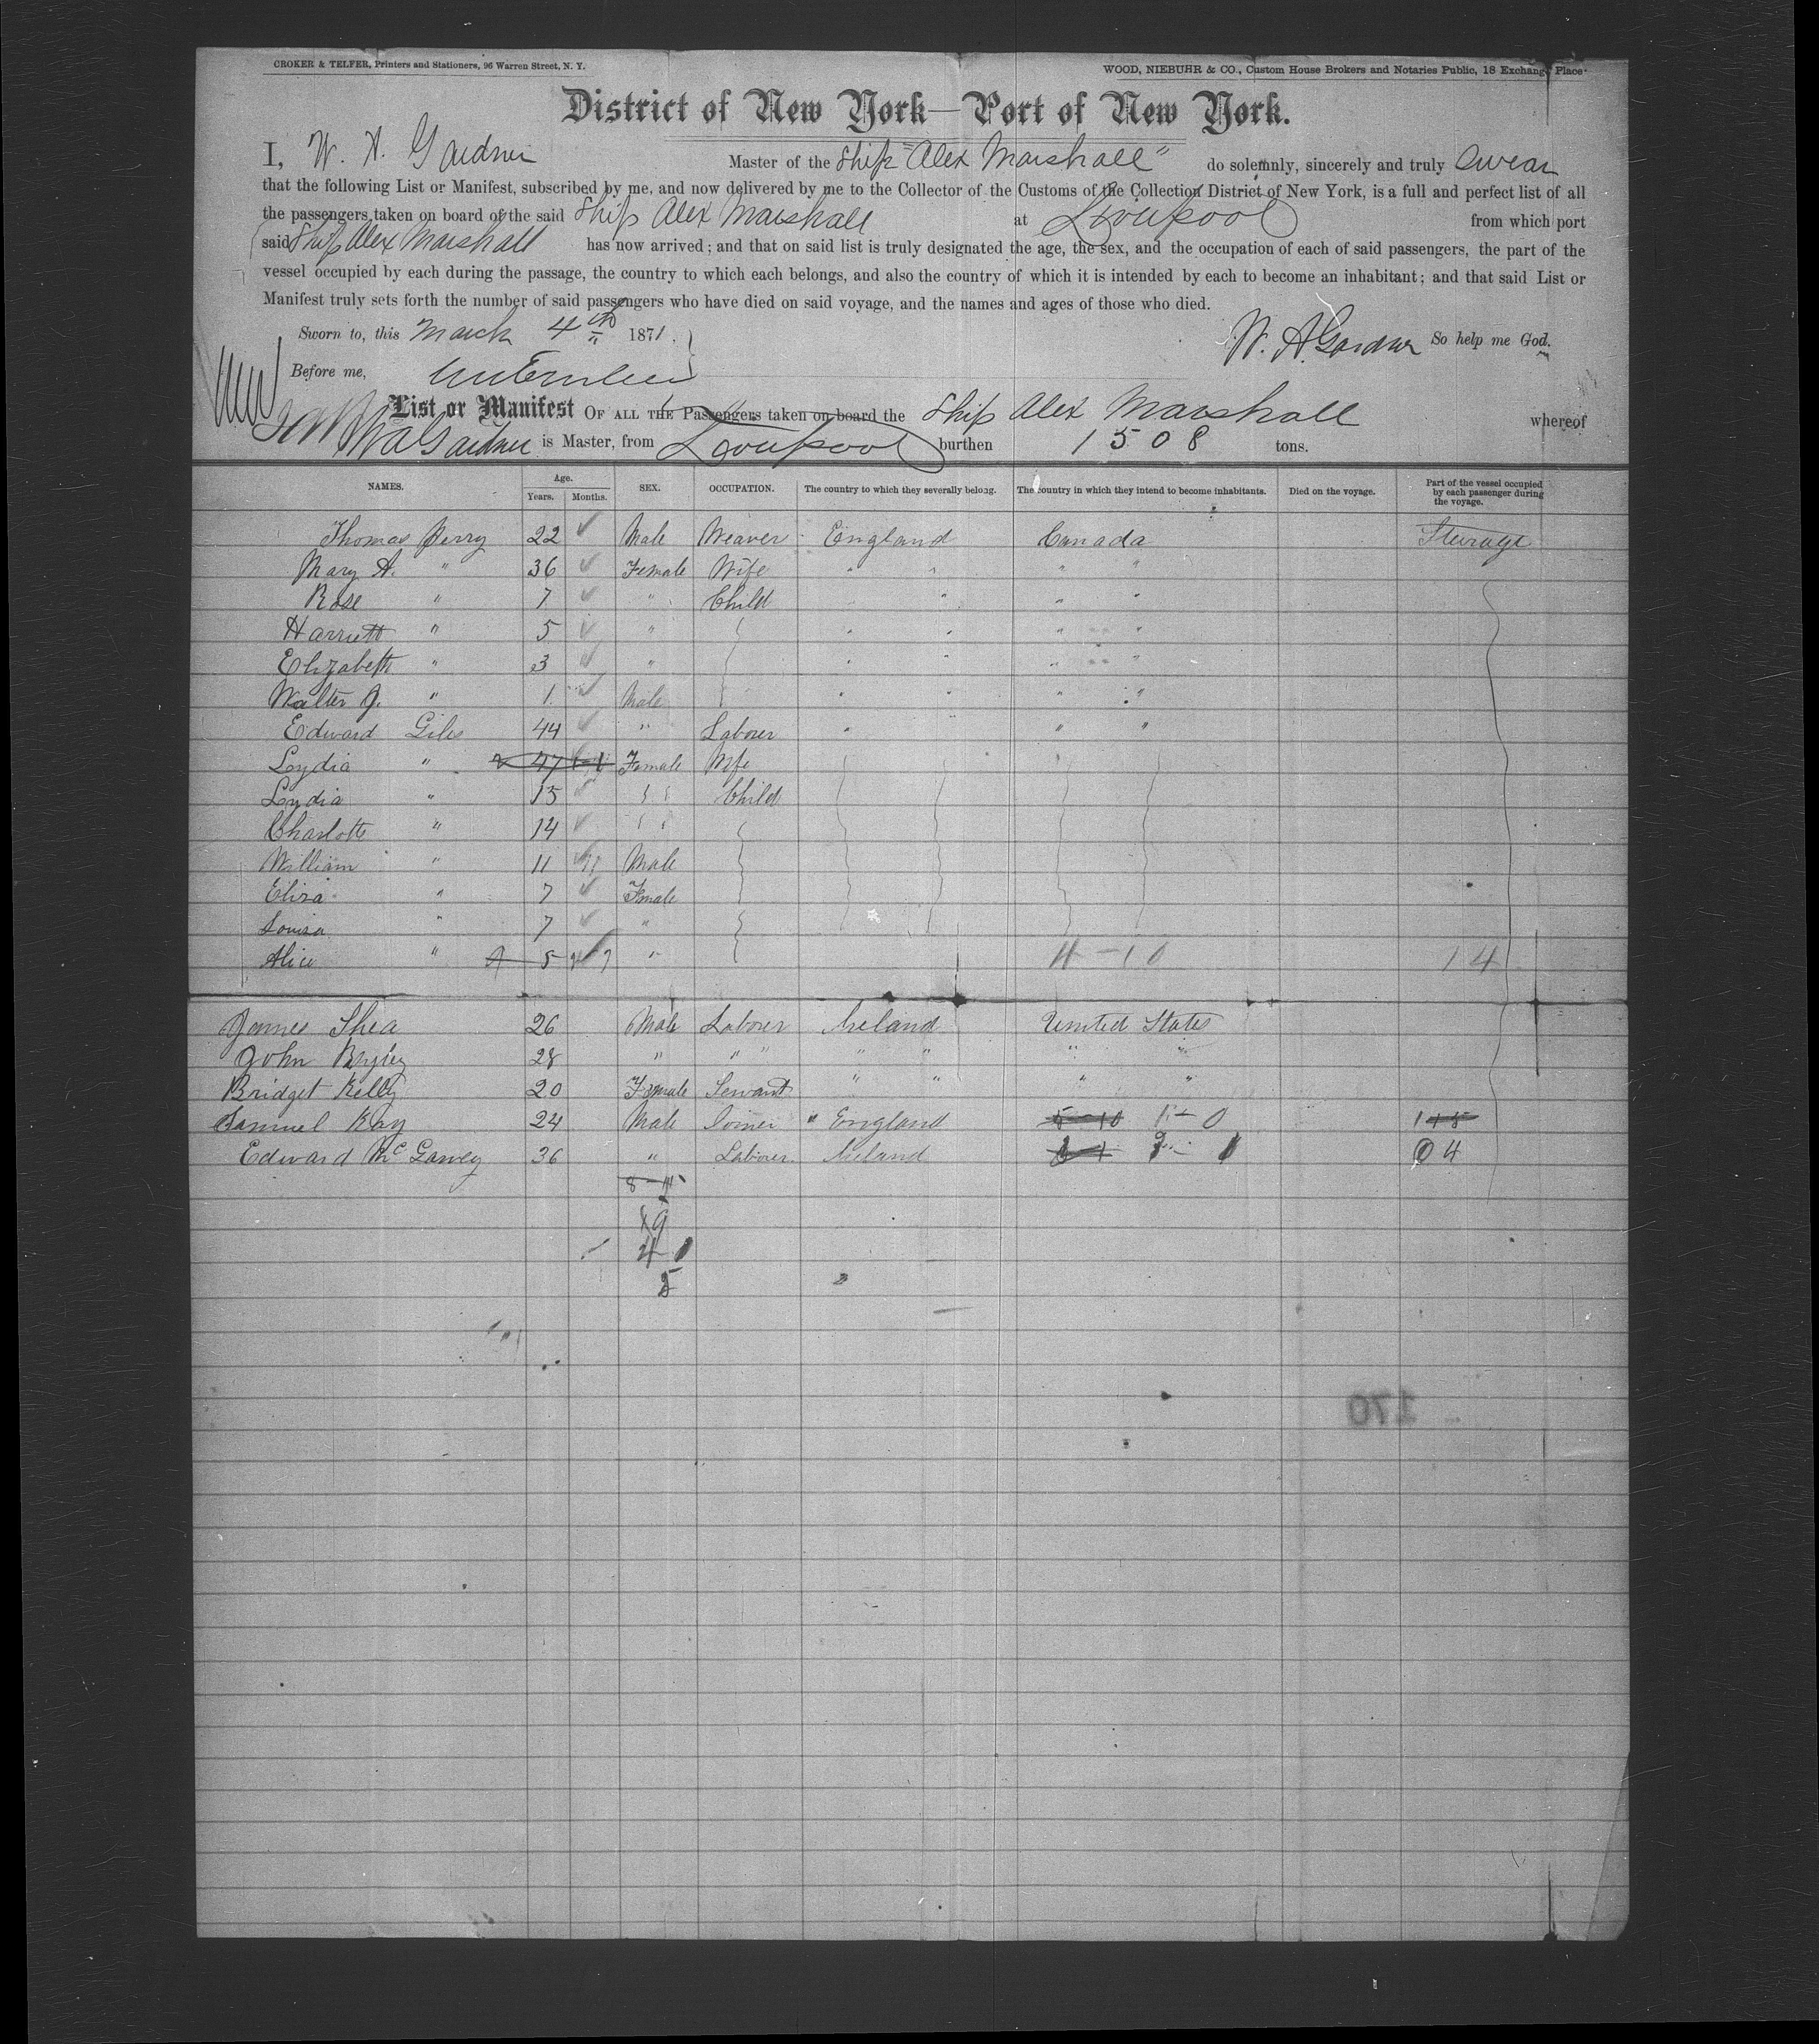 CROKER & TELFER, Printers and Stationers, 96 Warren Street, N. Y.
WOOD, NIEBUHR & CO., Custom House Brokers and Notaries Public, 18 Exchange Place.
District of New York—Port of New York.
I, W. A. Gardner Master of the Ship "Alex Marshall" do solemnly, sincerely and truly Swear
that the following List or Manifest, subscribed by me, and now delivered by me to the Collector of the Customs of the Collection District of New York, is a full and perfect list of all
the passengers taken on board of the said Ship Alex Marshall at Liverpool from which port
said Ship Alex Marshall has now arrived; and that on said list is truly designated the age, the sex, and the occupation of each of said passengers, the part of the
vessel occupied by each during the passage, the country to which each belongs, and also the country of which it is intended by each to become an inhabitant; and that said List or
Manifest truly sets forth the number of said passengers who have died on said voyage, and the names and ages of those who died.
Sworn to, this March 4th 1871. W. A. Gardner So help me God.
Before me,
List or Manifest OF ALL THE Passengers taken on board the Ship Alex Marshall whereof
W A Gardner is Master, from Liverpool burthen 1508 tons.
NAMES. Age. Years. Months. SEX. OCCUPATION. The country to which they severally belong. The country in which they intend to become inhabitants. Died on the voyage. Part of the vessel occupied by each passenger during the voyage.
Thomas Perry 22 ✓ Male Weaver England Canada Steerage
Mary A. " 36 ✓ Female Wife " " " "
Rose " 7 ✓ " Child " " "
Harriett " 5 ✓ " " " " "
Elizabeth " 3 ✓ " " " " "
Walter J. " 1 ✓ Male " " " "
Edward Giles 44 ✓ " Labourer " " "
Lydia " 47 Female Wife
Lydia " 15 ✓ " Child
Charlotte " 14 ✓ "
William " 11 Male
Eliza " 7 ✓ Female
Louisa " 7 ✓ "
Alice " 5 " 4-10 14
James Shea 26 Male Labourer Ireland United States
John 28 " " " " " " "
Bridget Kelly 20 Female Servant " " " "
Samuel Kay 24 Male Joiner " England 5-10 1-0
Edward McGarvey 36 " Labourer Ireland 04
170